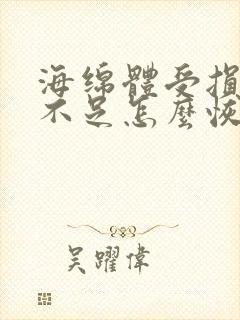 海绵體受損
不足怎麼恢
吴躍偉